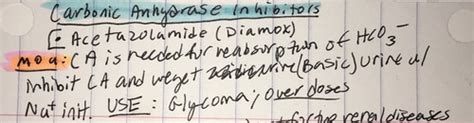 Carbonic Anhydrase Inhibitors
Acetazolamide (Diamox)
MOA: CA is needed for reabsorption of HCO3-
Inhibit CA and we get (Basic) urine w/
Nat init. USE: Glycoma; over doses
for the renal diseases